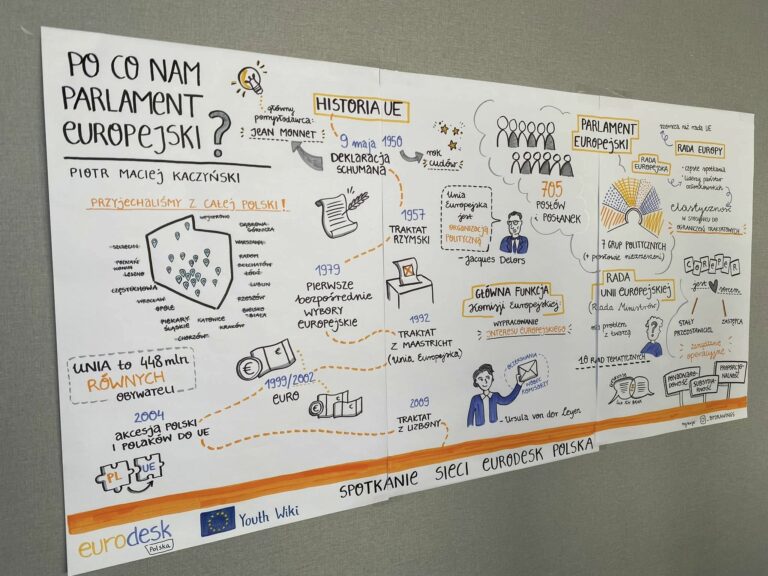 PO CO NAM
PARLAMENT
EUROPEJSKI?
PIOTR MACIEJ KACZYŃSKI
PRZYJECHALIŚMY Z CAŁEJ POLSKI!
WEJHEROWO
DĄBROWA
GÓRNICZA
SZCZECIN
WARSZAWA
POZNAŃ
RADOM
KONIN
BEŁCHATÓW
LESZNO
ŁÓDŹ
CZĘSTOCHOWA
LUBLIN
WROCŁAW
RZESZÓW
OPOLE
BIELSKO-
BIAŁA
PIEKARY
ŚLĄSKIE
KATOWICE
KRAKÓW
CHORZÓW
UNIA to 448 mln
RÓWNYCH
OBYWATELI
2004
AKCESJA POLSKI
I POLAKÓW DO UE
PL
UE
główny
pomysłodawca:
JEAN MONNET
HISTORIA UE
9 maja 1950
DEKLARACJA
SCHUMANA
rok
cudów
1957
TRAKTAT
RZYMSKI
1979
PIERWSZE
bezpośrednie
WYBORY
EUROPEJSKIE
1992
TRAKTAT
Z MAASTRICHT
(Unia Europejska)
1999/2002
EURO
2009
TRAKTAT
Z LIZBONY
PARLAMENT
EUROPEJSKI
705
POSŁÓW
i POSŁANEK
Unia
Europejska
jest
ORGANIZACJĄ
POLITYCZNĄ
- Jacques Delors
GŁÓWNA FUNKCJA
Komisji Europejskiej:
WYPRACOWANIE
INTERESU EUROPEJSKIEGO
OCZEKIWANIA
WOBEC
KOMISARZY
- Ursula von der Leyen
RADA
EUROPEJSKA
7 GRUP POLITYCZNYCH
(+ posłowie niezrzeszeni)
RADA
UNII EUROPEJSKIEJ
(Rada Ministrów)
10 RAD TEMATYCZNYCH
RADA EUROPY
- częste spotkania
elastyczność
W STOSUNKU DO
OGRANICZEŃ TRAKTATOWYCH
COREPER
jest
sercem
STAŁY
PRZEDSTAWICIEL
ZASTĘPCA
zarządzanie
operacyjne
POMOCNICZOŚĆ
SUBSYDIARNOŚĆ
PROPORCJONALNOŚĆ
SPOTKANIE SIECI EURODESK POLSKA
eurodesk
Polska
Youth Wiki